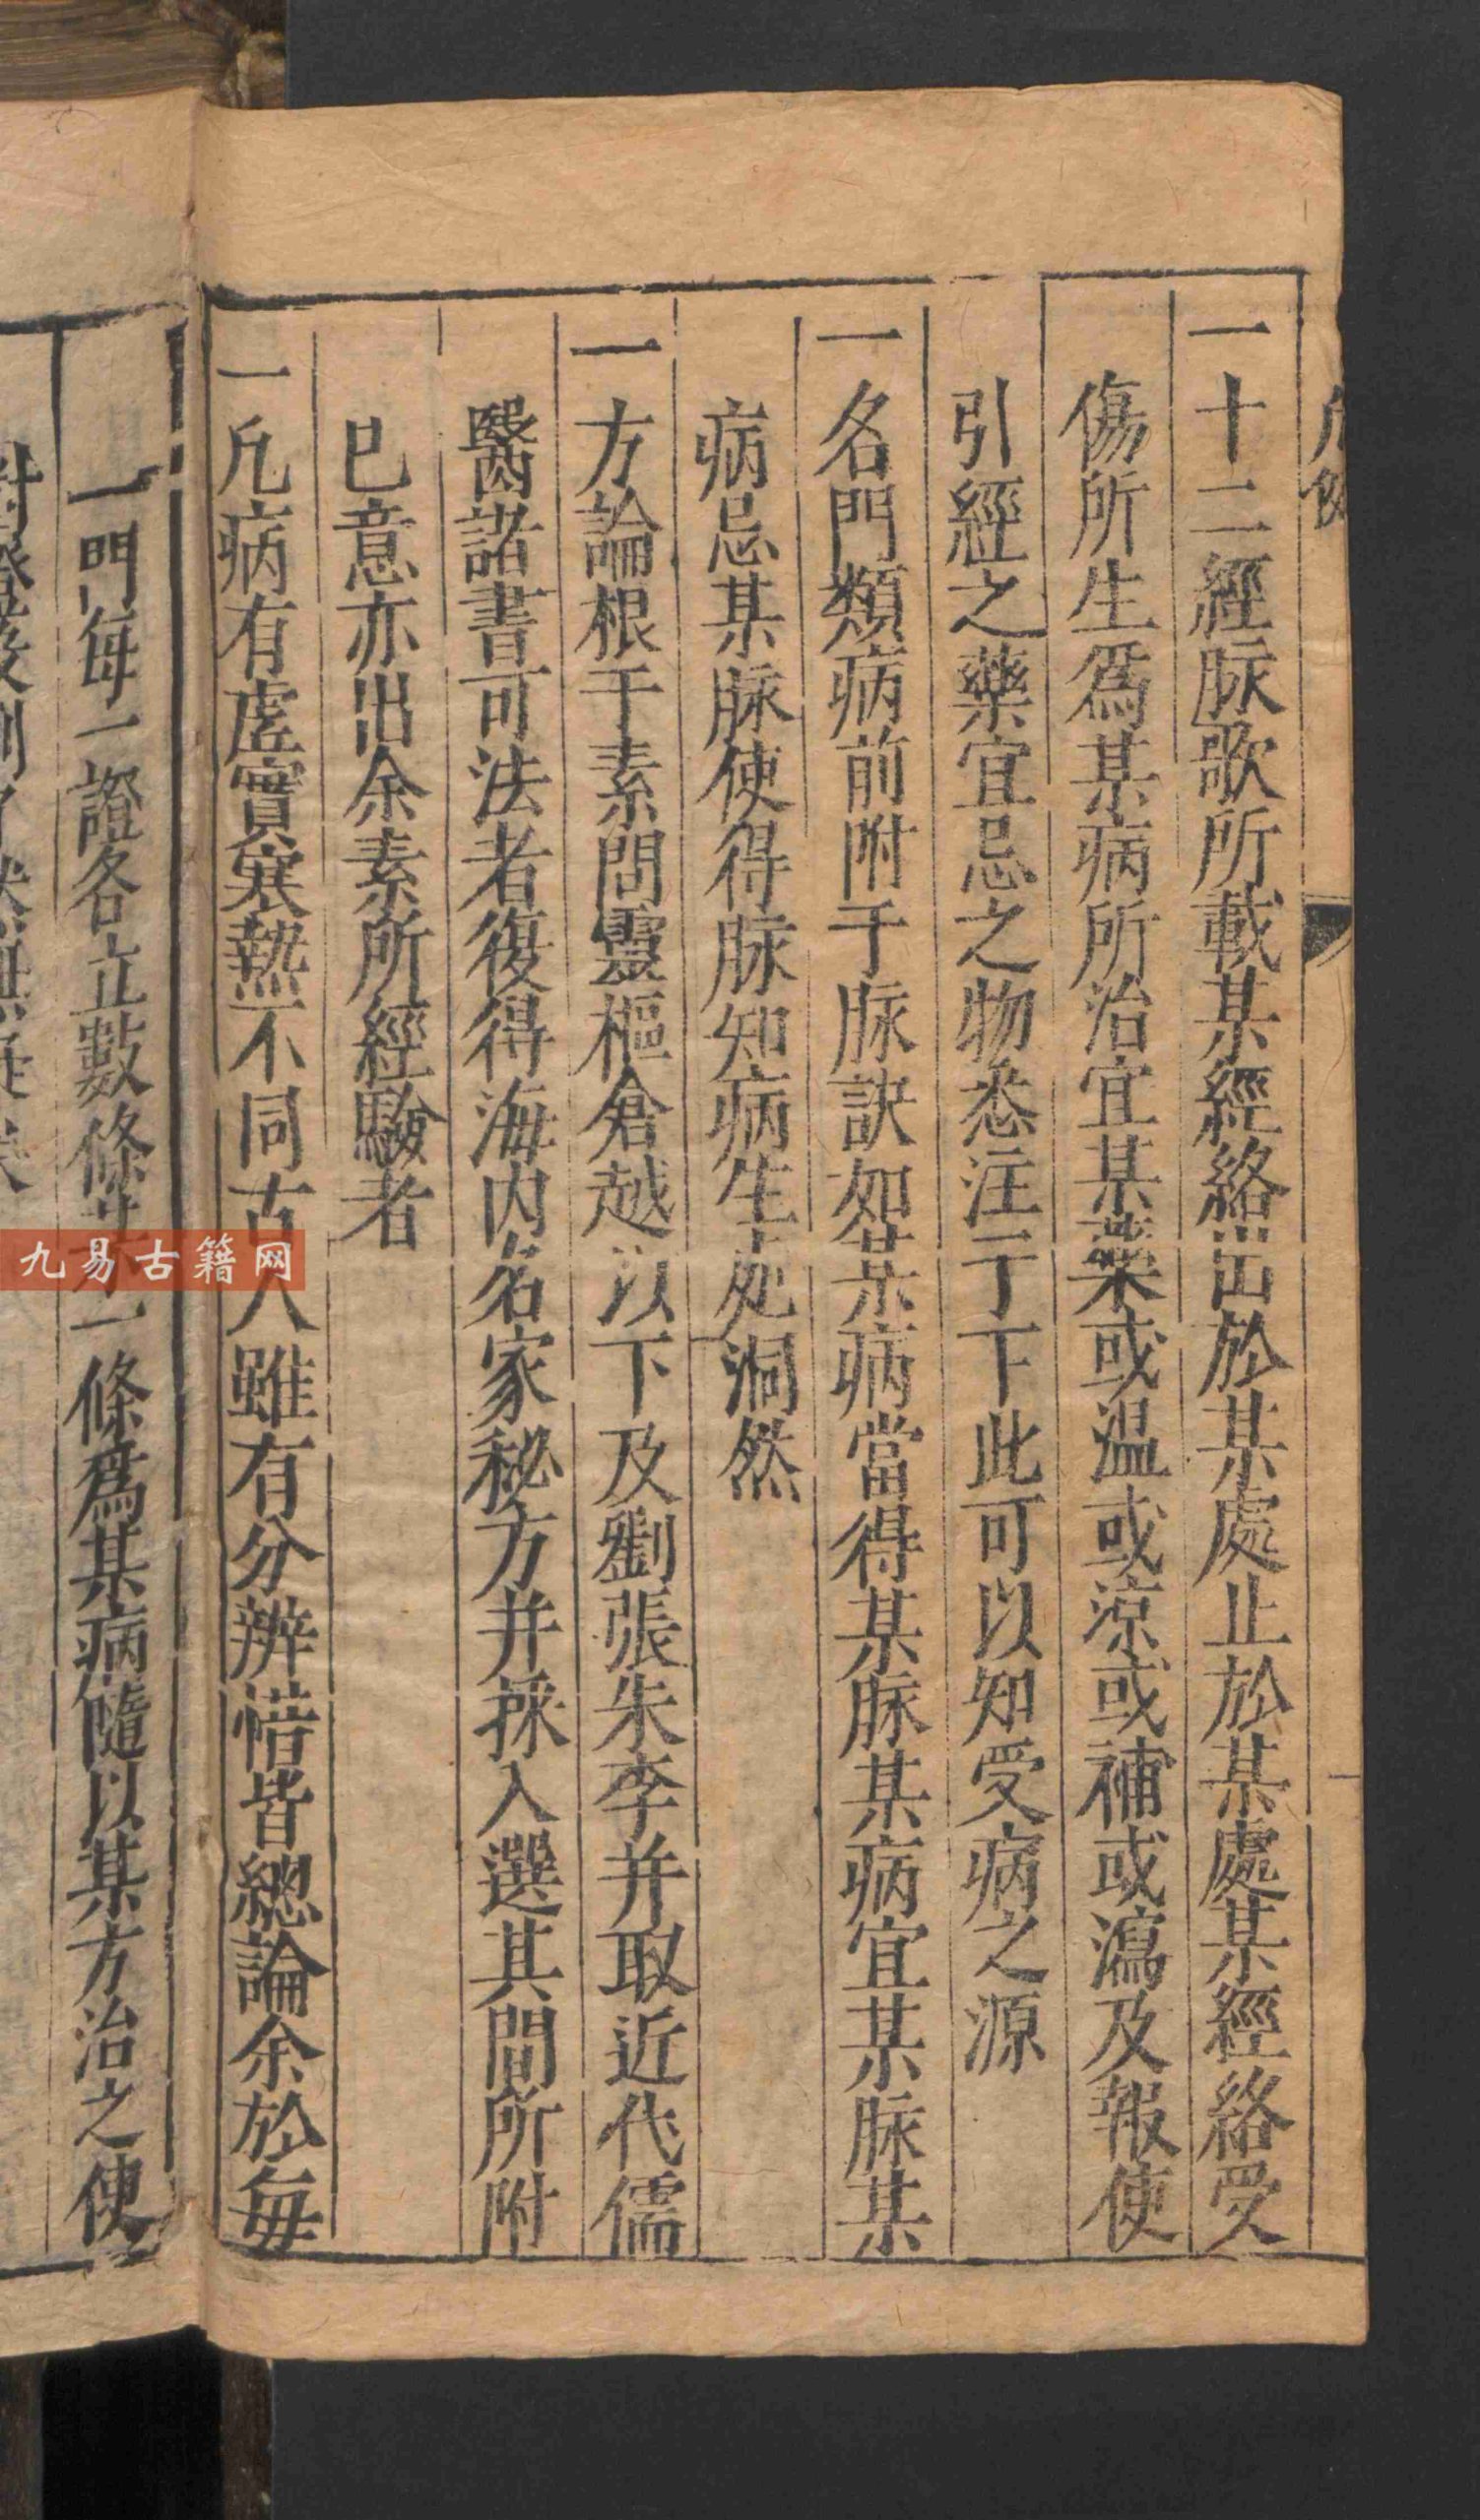 凡例
一十二經脉歌所載某經絡出於某處止於某處某經絡受
傷所生爲某病所治宜某藥或温或涼或補或瀉及報使
引經之藥宜忌之物悉注于下此可以知受病之源
一名門類病前附于脉訣如某病當得某脉某病宜某脉某
病忌某脉使得脉知病生死洞然
一方論根于素問靈樞倉越以下及劉張朱李并取近代儒
醫諸書可法者復得海内名家秘方并採入選其間所附
已意亦出余素所經驗者
一凡病有虗實寒熱不同古人雖有分辨惜皆總論余於每
一門每一證各立數條某一條爲某病隨以某方治之使
九易古籍网